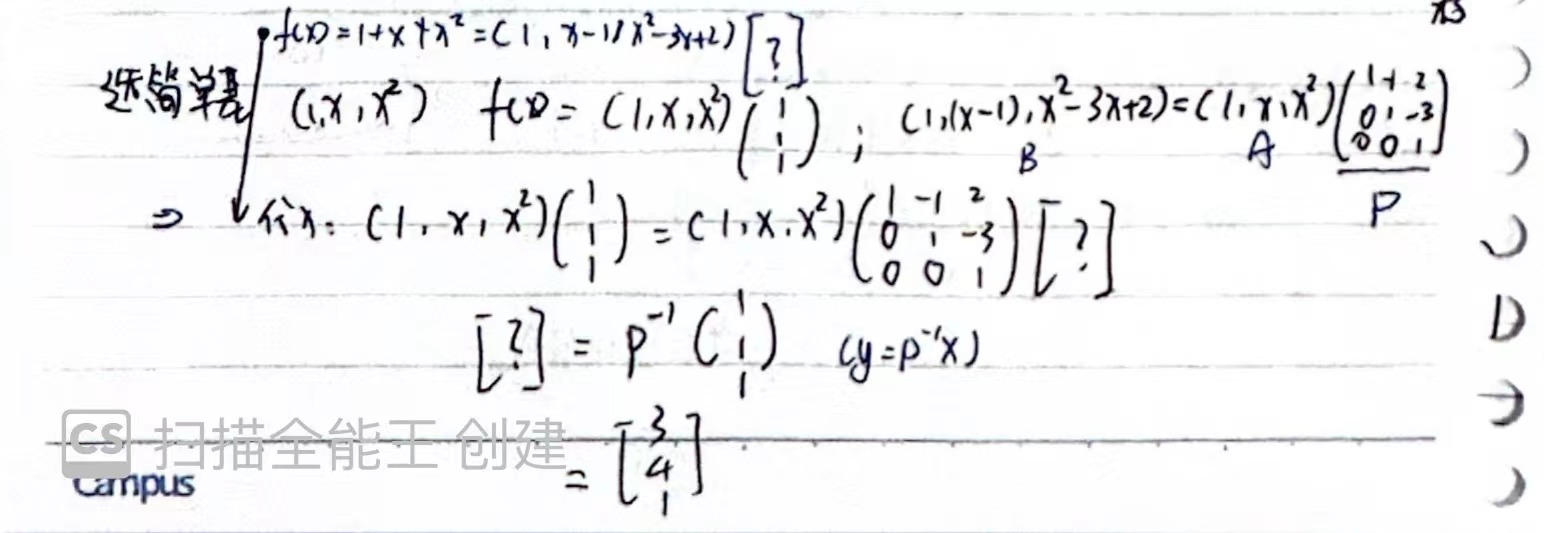 f(x)=1+x+x²=(1, x-1, x²-3x+2)[?]
选简单基 (1,x,x²) f(x)=(1,x,x²)(1 1 1); (1,(x-1),x²-3x+2)=(1,x,x²)(1 -1 2 0 1 -3 0 0 1)
B A P
⇒ 代入: (1,x,x²)(1 1 1)=(1,x,x²)(1 -1 2 0 1 -3 0 0 1)[?]
[?]=P⁻¹(1 1 1) (y=P⁻¹x)
=[3 4 1]
CS 扫描全能王 创建
Campus